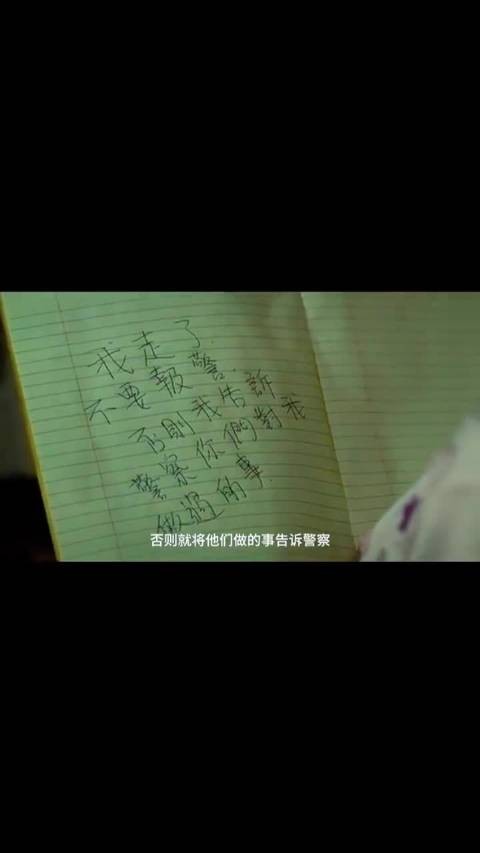 我走了.
不要報警.
否則我告訴
警察你們對我
做過的事.
否则就将他们做的事告诉警察